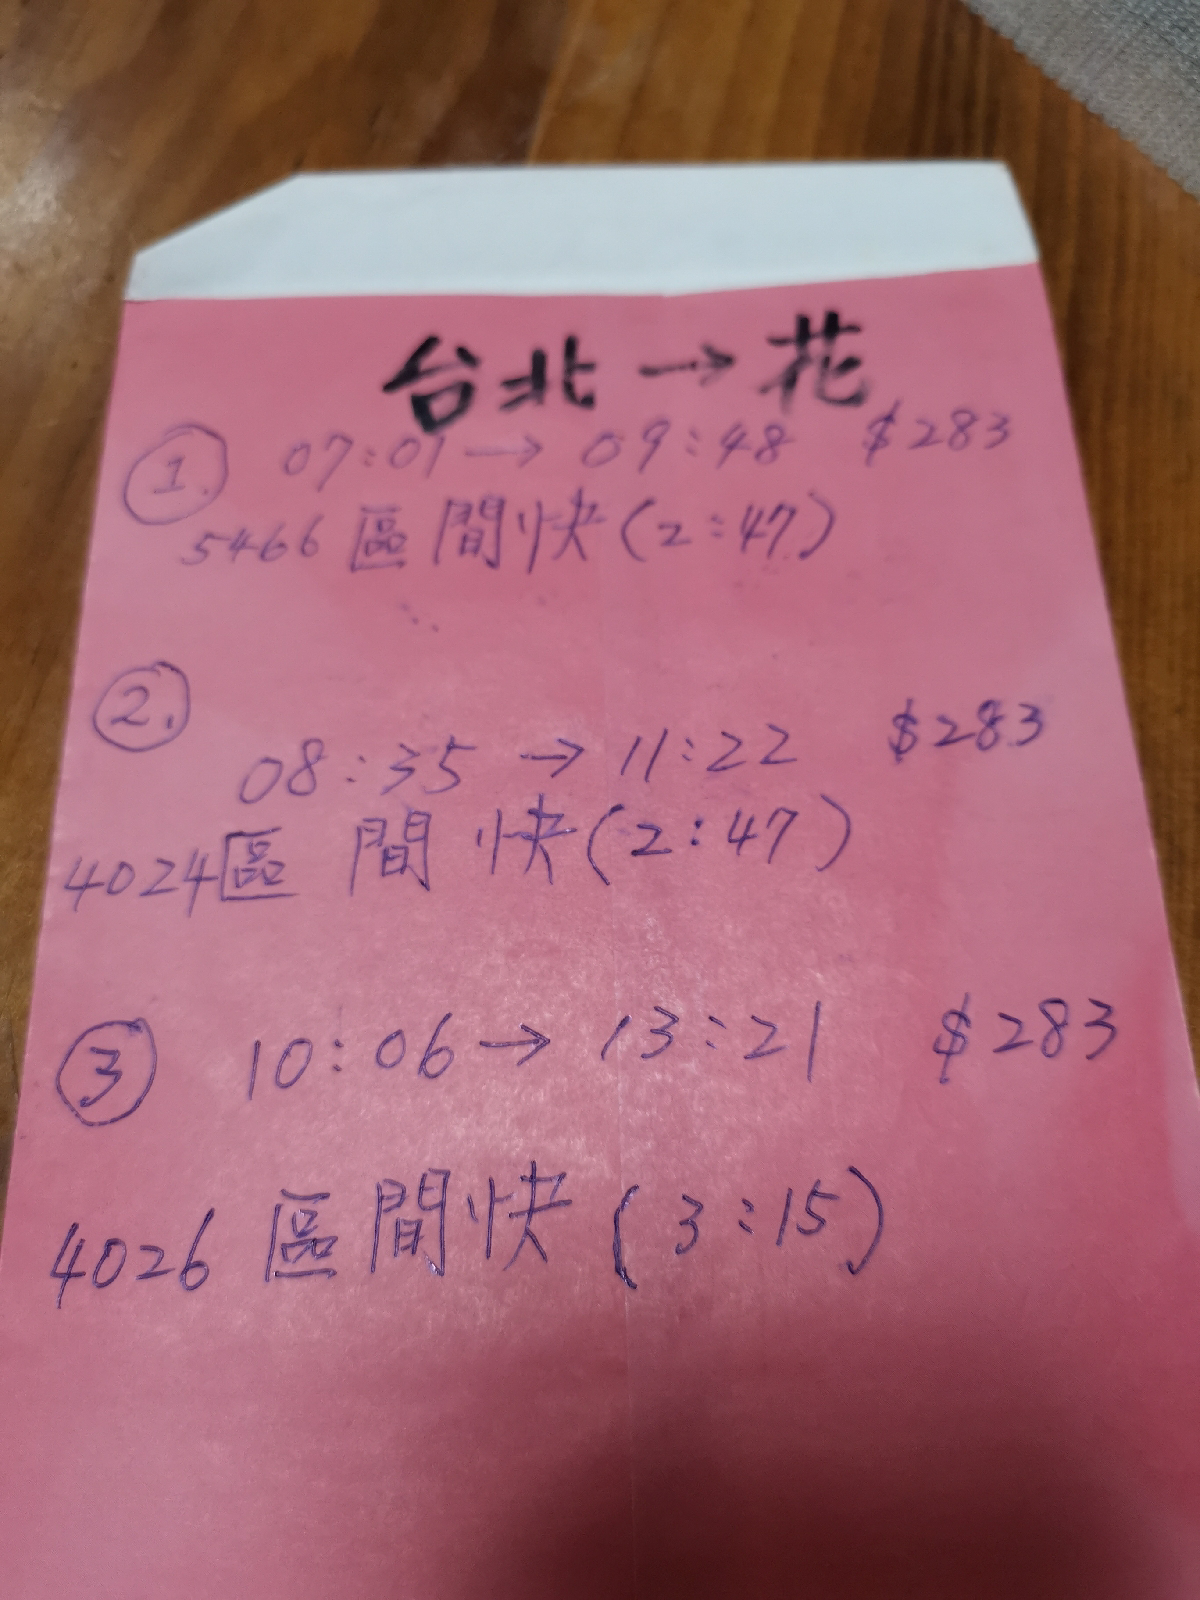 台北→花
①. 07:01→09:48 $283
5466 區間快(2:47)
②.
08:35→11:22 $283
4024區間快(2:47)
③ 10:06→13:21 $283
4026 區間快(3:15)